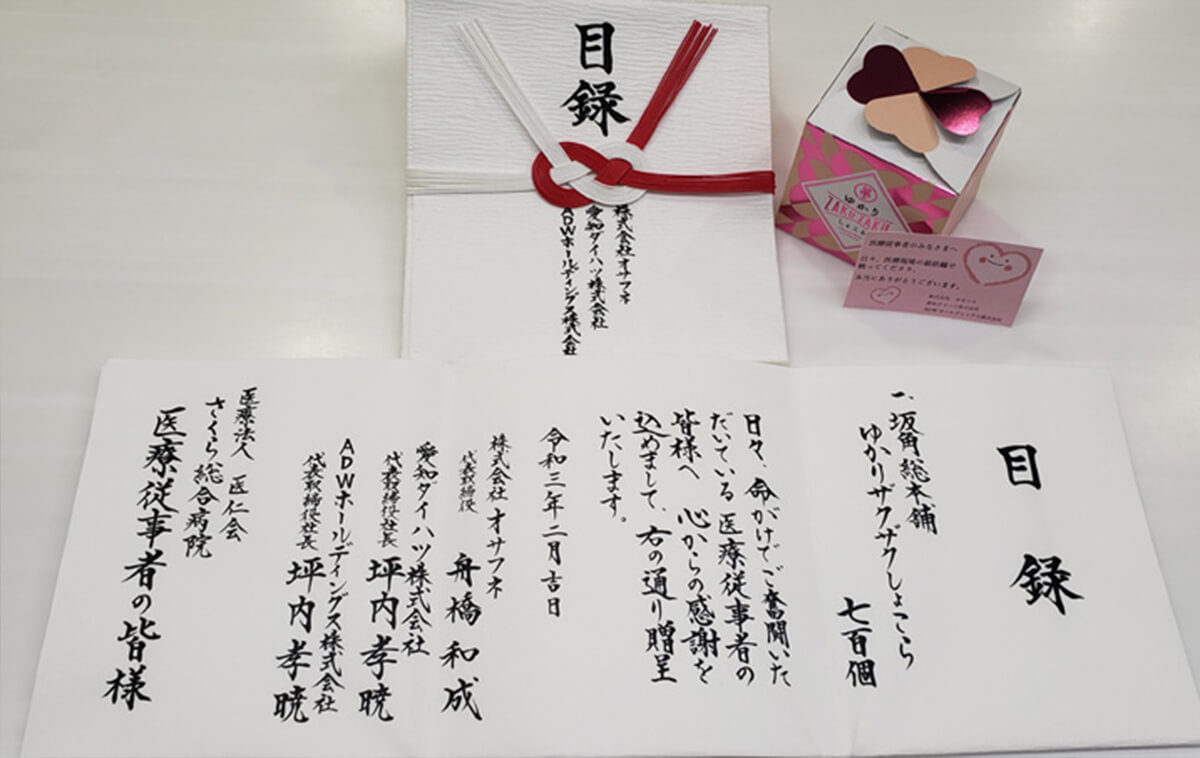 目録
株式会社オサフネ
愛知ダイハツ株式会社
ADWホールディングス株式会社
ゆかり
ZAKUZAKU
医療従事者のみなさまへ
日々、医療現場の最前線で
戦ってくださり、
本当にありがとうございます。
株式会社 オサフネ
愛知ダイハツ株式会社
ADWホールディングス株式会社
目録
一、坂角総本舖
ゆかりザクザクしょこら
七百個
日々、命がけでご奮闘いた
だいている医療従事者の
皆様へ 心からの感謝を
込めまして、右の通り贈呈
いたします。
令和三年二月吉日
株式会社オサフネ
代表取締役 舟橋和成
愛知ダイハツ株式会社
代表取締役社長 坪内孝暁
ADWホールディングス株式会社
代表取締役社長 坪内孝暁
医療法人 医仁会
さくら総合病院
医療従事者の皆様